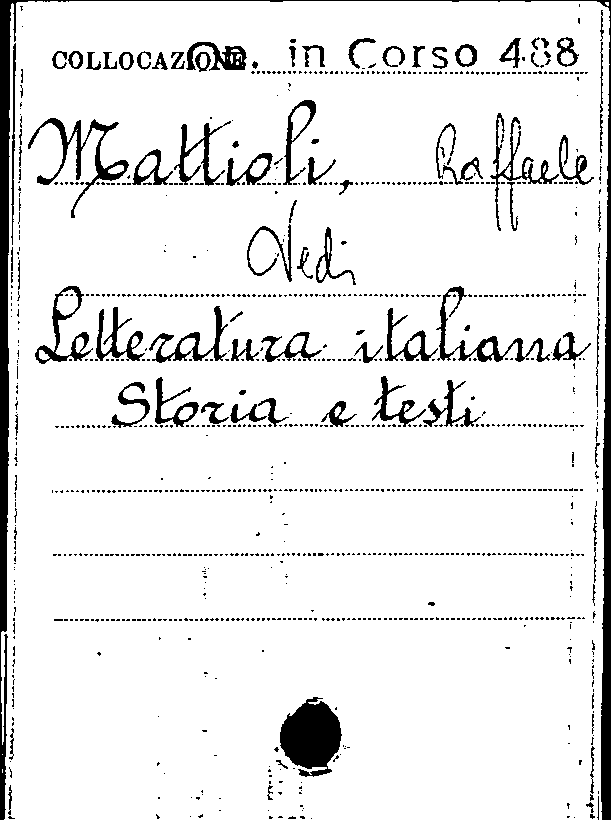 COLLOCAZIONE Op. in Corso 488
Mattioli, Raffaele
Vedi
Letteratura italiana
Storia e testi